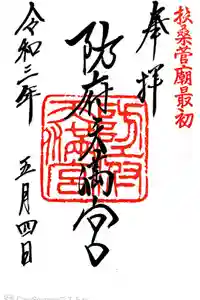 扶桑菅廟最初
奉拝
防府天満宮
令和三年
五月四日